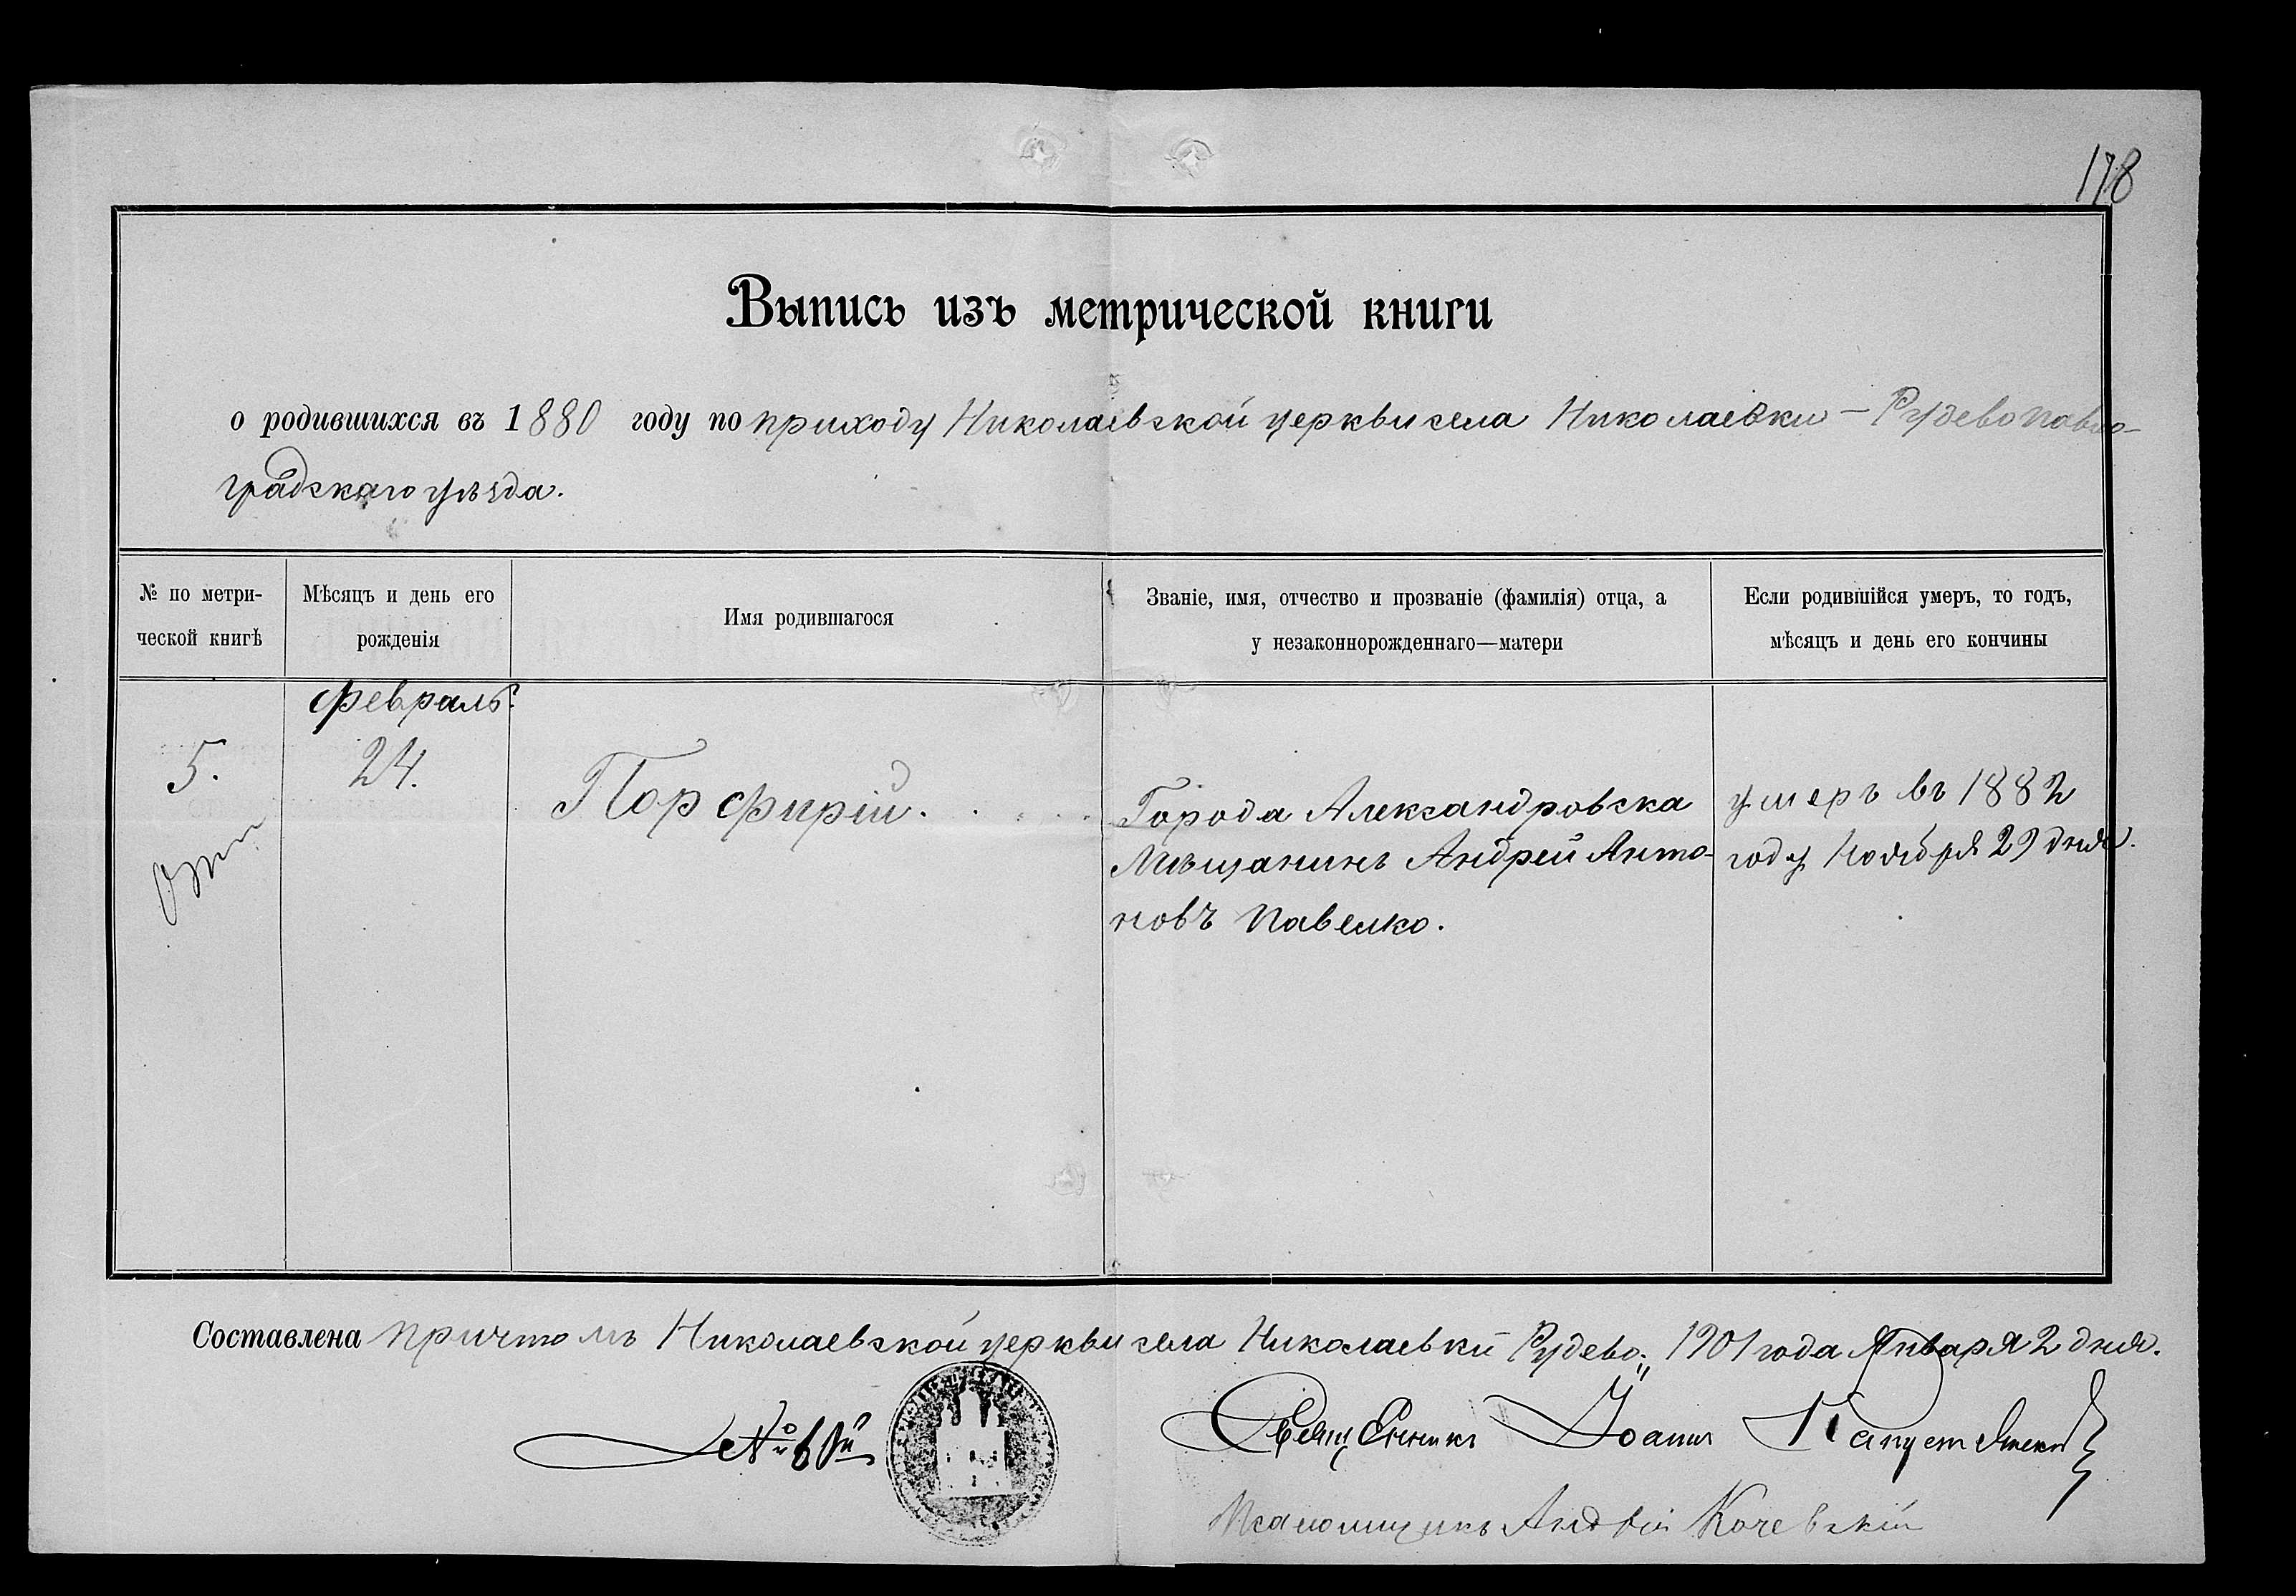 178
Выпись изъ метрической книги
о родившихся въ 1880 году по приходу Николаевской церкви села Николаевки – Рудево Павло-
градскаго уѣзда.
№ по метри-
ческой книгѣ
Мѣсяцъ и день его
рожденія
Имя родившагося
Званіе, имя, отчество и прозваніе (фамилія) отца, а
у незаконнорожденнаго—матери
Если родившійся умеръ, то годъ,
мѣсяцъ и день его кончины
5.
Февраль.
24.
Порфирій.
Города Александровска
Мѣщанинъ Андрей Анто-
новъ Павелко.
умеръ въ 1882
году Ноября 29 дня.
Составлена причтомъ Николаевской церкви села Николаевки Рудево: 1901 года Января 2 дня.
№ 6й
Священникъ Іоаннъ
Псаломщикъ Кочевскій